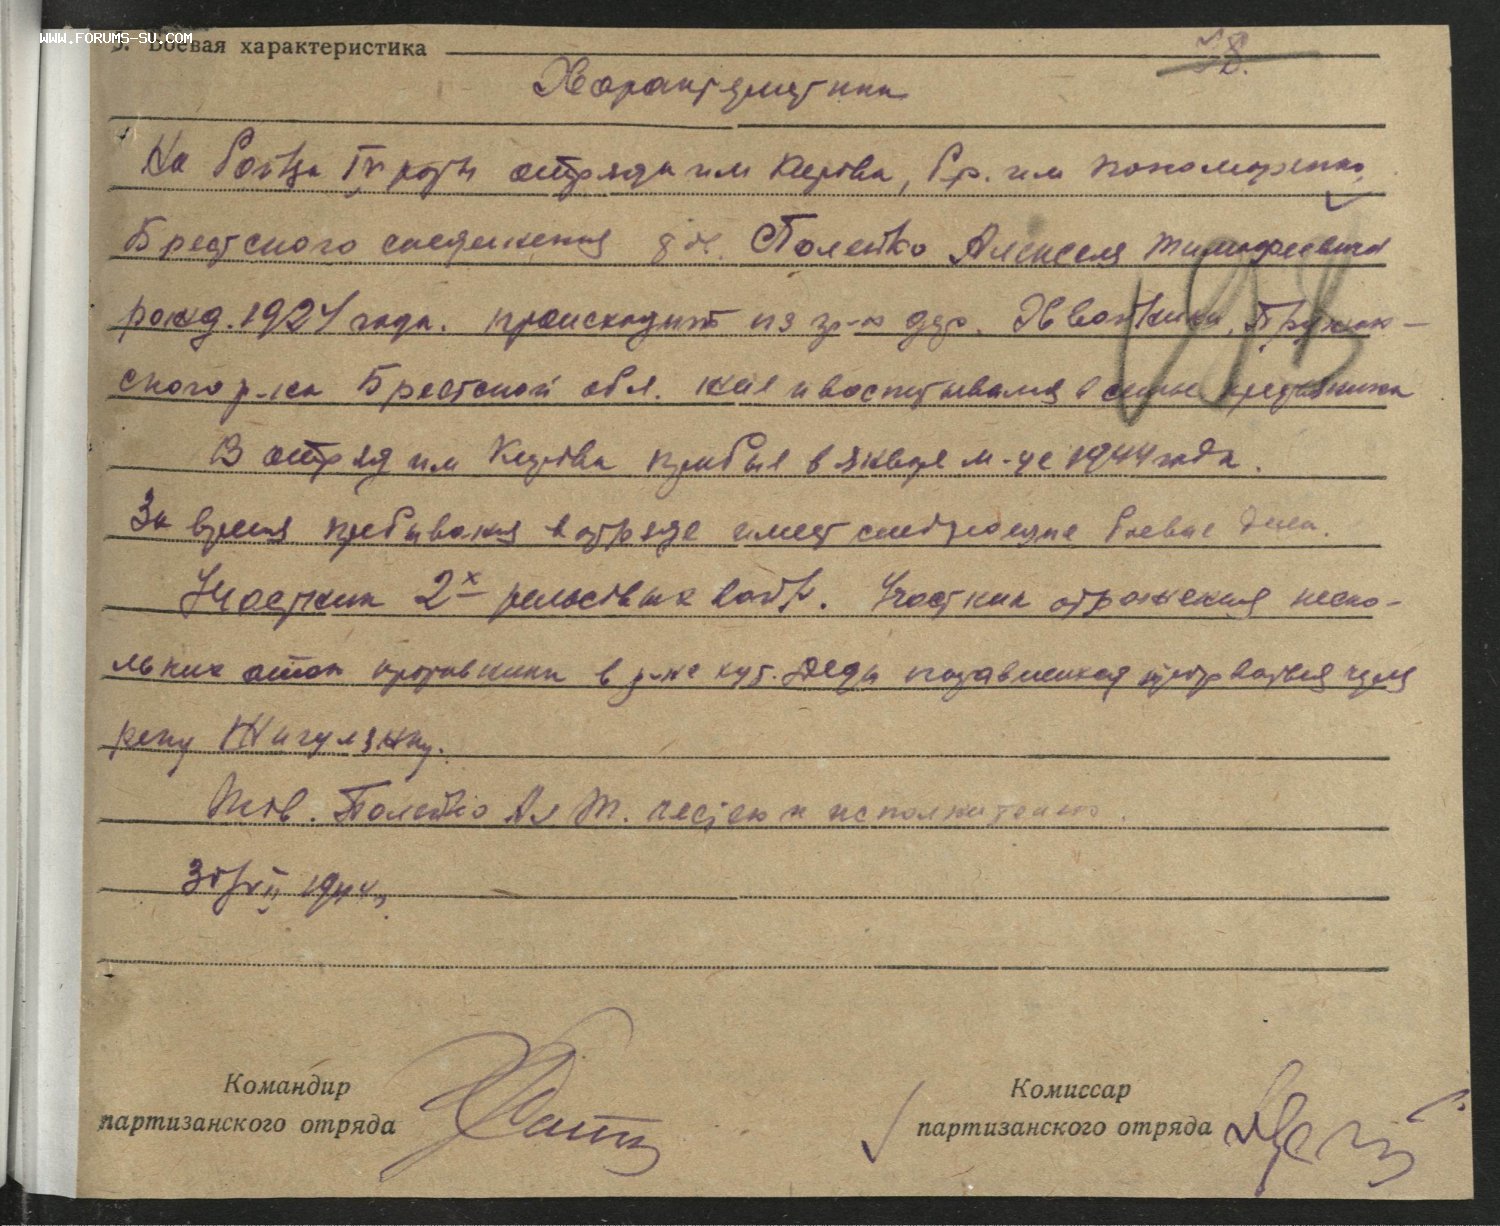 WWW.FORUMS-SU.COM
9. Боевая характеристика
Характеристика
На бойца IV роты отряда им Кирова, бр. им Пономаренко,
Брестского соединения Алексея Тимофеевича
рожд. 1924 года. происходит из гр-н дер. Пружан-
ского р-на Брестской обл. воспитывался в семье
В отряд им Кирова прибыл в январе м-це 1944 года.
За время пребывания в отряде имеет следующие боевые дела.
Участник 2х рельсовых войн. Участник отражения неско-
льких атак противника в р-не хут. Деды прорваться через
реку Жигулянку.
Тов. А Т. честен и исполнителен.
1944
Командир
партизанского отряда
Комиссар
партизанского отряда